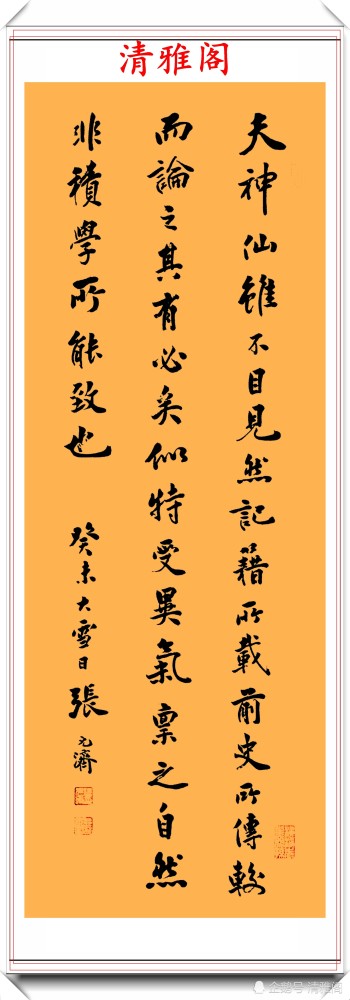 清雅阁
夫神仙雖不目見然記籍所載前史所傳較
而論之其有必矣似特受異氣禀之自然
非積學所能致也
癸未大雪日張元濟
企鹅号 清雅阁